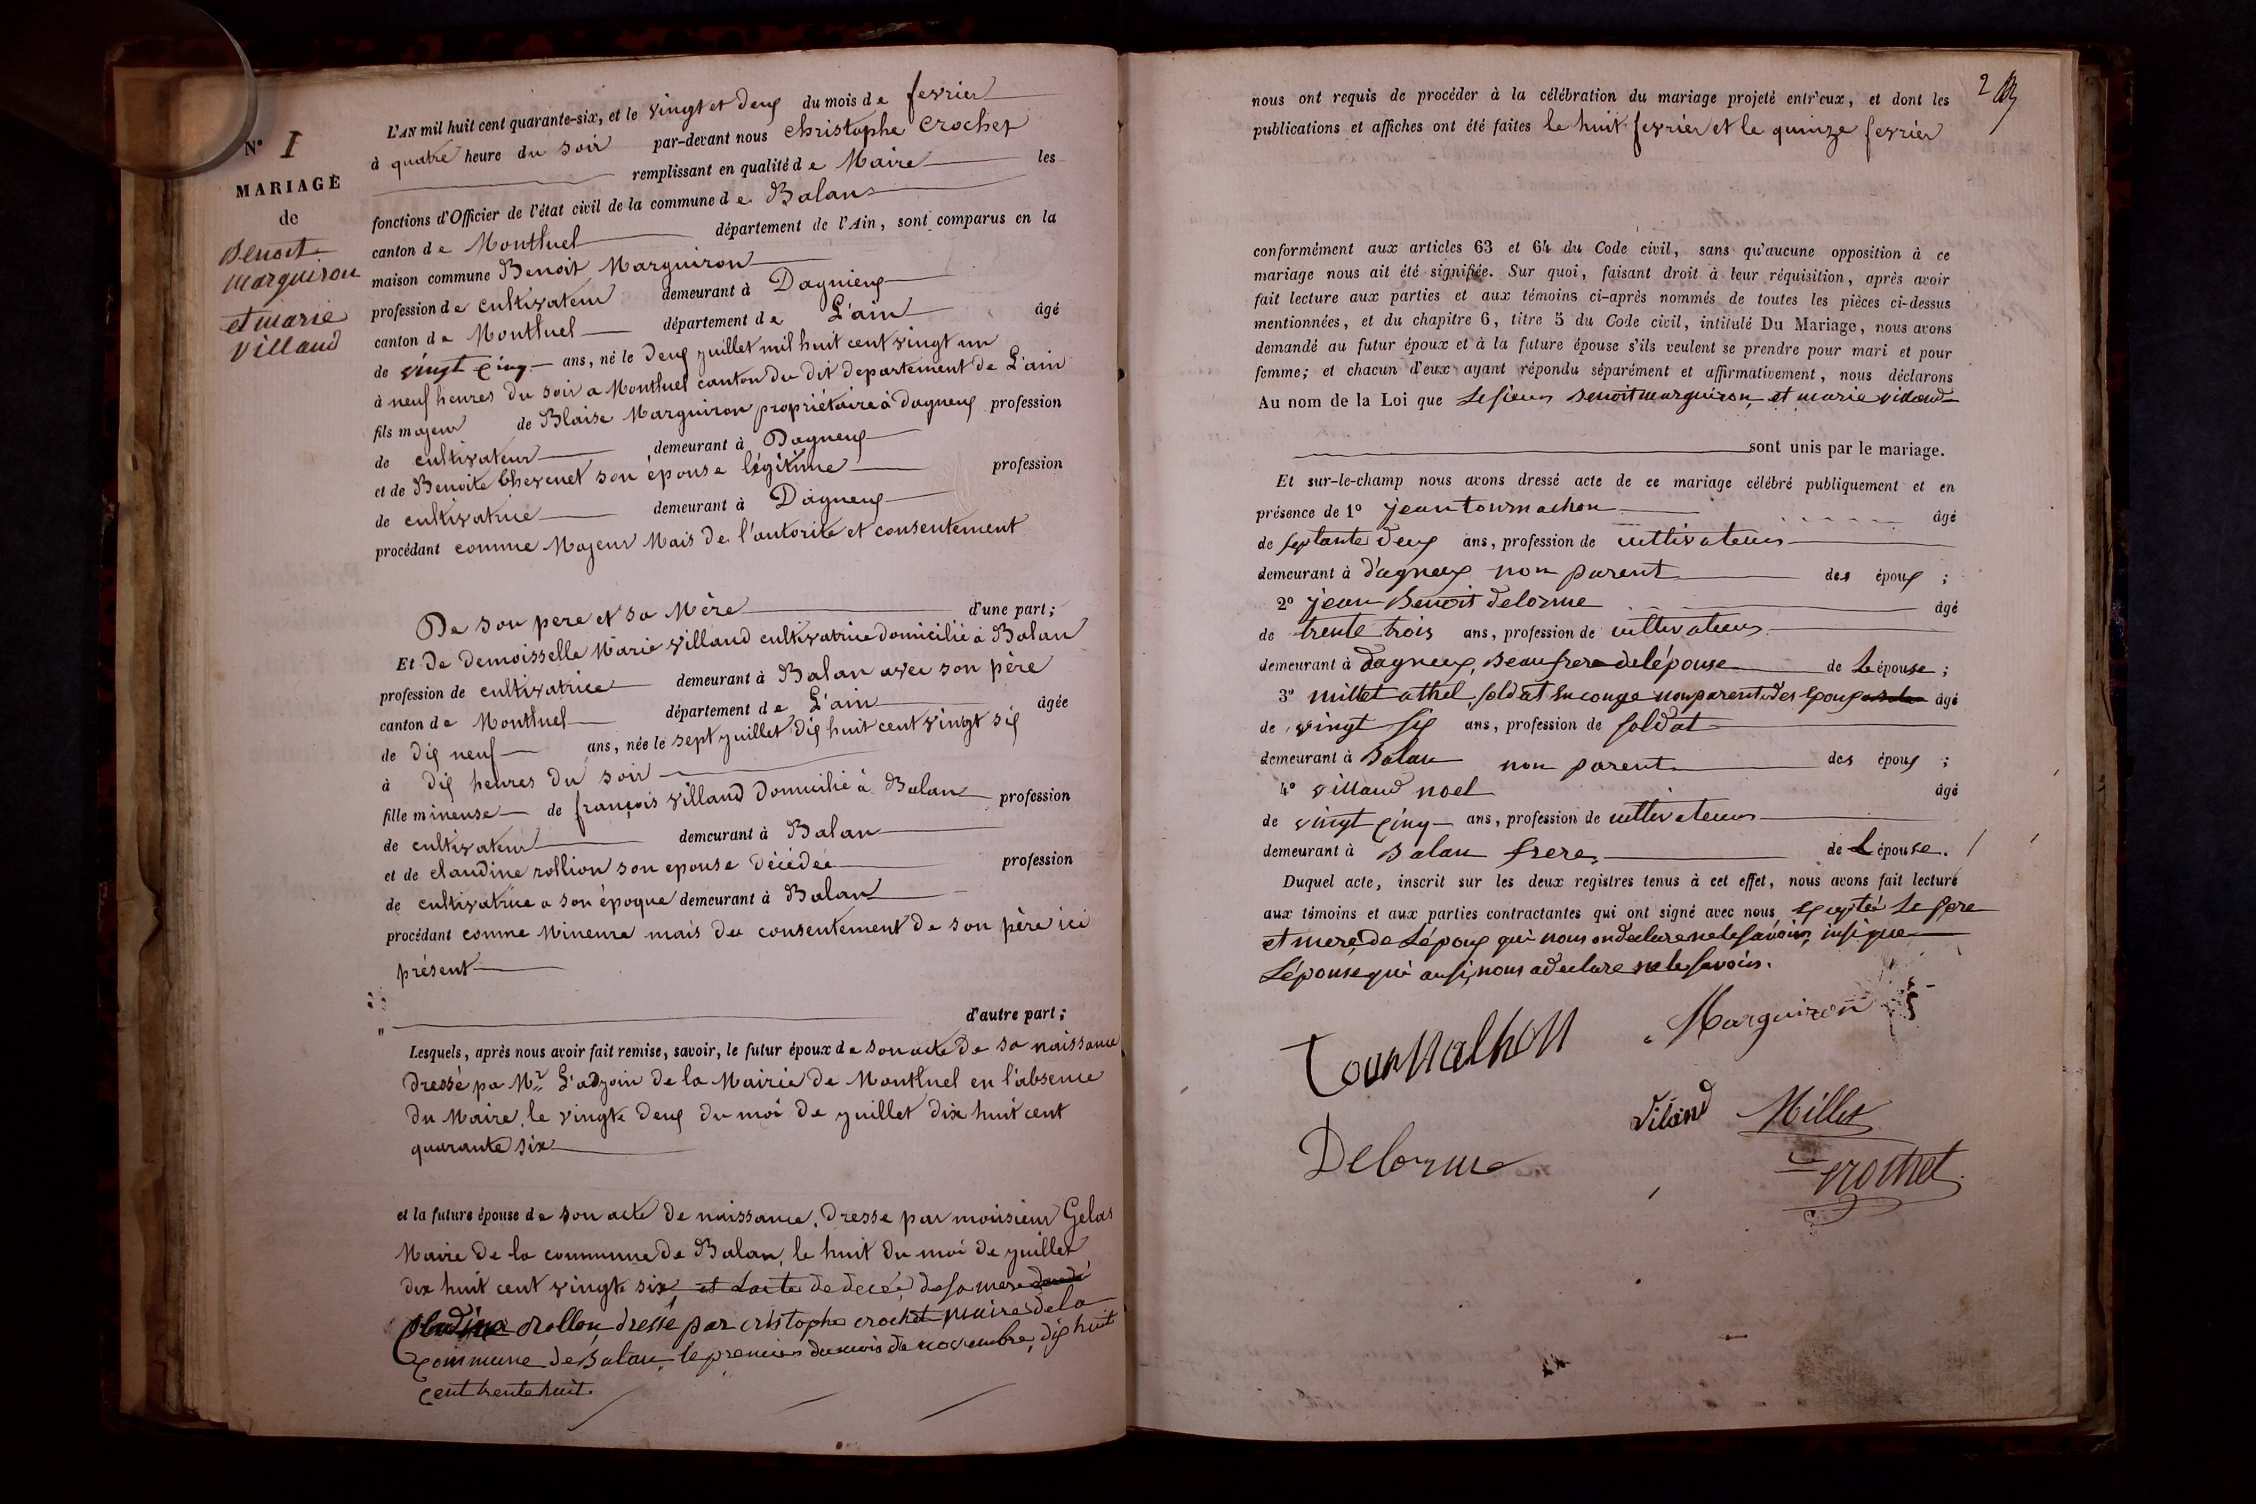 N° 1
MARIAGE
de
Benoit
Marguiron
et marie
Villaud
L'AN mil huit cent quarante-six, et le vingt et deux du mois de fevrier
à quatre heure du soir par-devant nous Christophe Crochet
remplissant en qualité de Maire les
fonctions d'Officier de l'état civil de la commune de Balan
canton de Montluel département de l'Ain, sont comparus en la
maison commune Benoit Marguiron
profession de cultivateur demeurant à Dagnieux
canton de Montluel département de L'ain âgé
de vingt cinq ans, né le deux juillet mil huit cent vingt un
à neuf heures du soir a Montluel canton du dit departement de L'ain
fils majeur de Blaise Marguiron propriétaire à dagneux profession
de cultivateur demeurant à Dagneux
et de Benoite Chevenet son épouse légitime profession
de cultivatrice demeurant à Dagneux
procédant comme Majeur Mais de l'autorité et consentement
De son pere et sa Mère d'une part;
Et De demoisselle Marie villaud cultivatrice domicilié à Balan
profession de cultivatrice demeurant à Balan avec son père
canton de Montluel département de L'ain âgée
de dix neuf ans, née le sept juillet dix huit cent vingt six
à dix heures du soir
fille mineuse de françois villaud domicilié à Balan profession
de cultivateur demeurant à Balan
et de claudine rollion son epouse décédée profession
de cultivatrice a son époque demeurant à Balan
procédant comme Mineure mais du consentement de son père ici
présent
d'autre part;
Lesquels, après nous avoir fait remise, savoir, le futur époux de son acte de sa naissance
dressé pa Mr L'adjoin de la Mairie de Montluel en l'absence
du Maire, le vingt deux du moi de juillet dix huit cent
quarante six
et la future épouse de son acte de naissance, dresse par monsieur Gelas
Maire de la commune de Balan, le huit du moi de juillet
dix huit cent vingt six, et Lacte de decéé de sa mere
Claudine rollon dressé par cristophe crochet maire de la
commune de Balan, le premier du mois de novembre, dix huit
cent trente huit.
2
nous ont requis de procéder à la célébration du mariage projeté entr'eux, et dont les
publications et affiches ont été faites le huit fevrier et le quinze fevrier
conformément aux articles 63 et 64 du Code civil, sans qu'aucune opposition à ce
mariage nous ait été signifiée. Sur quoi, faisant droit à leur réquisition, après avoir
fait lecture aux parties et aux témoins ci-après nommés de toutes les pièces ci-dessus
mentionnées, et du chapitre 6, titre 5 du Code civil, intitulé Du Mariage, nous avons
demandé au futur époux et à la future épouse s'ils veulent se prendre pour mari et pour
femme; et chacun d'eux ayant répondu séparément et affirmativement, nous déclarons
Au nom de la Loi que Le sieur Benoit marguiron, et marie villaud
sont unis par le mariage.
Et sur-le-champ nous avons dressé acte de ce mariage célébré publiquement et en
présence de 1° jean tournachon âgé
de septante deux ans, profession de cultivateur
demeurant à dagneux non parent des époux;
2° jean Benoit delorme âgé
de trente trois ans, profession de cultivateur
demeurant à dagneux, Beaufrere de lépouse de Lépouse;
3° millet athel, soldat en conge non parent des epoux âgé
de vingt six ans, profession de soldat
demeurant à Balan non parent des époux;
4° villaud noel âgé
de vingt cinq ans, profession de cultivateur
demeurant à Balan frere de Lépouse.
Duquel acte, inscrit sur les deux registres tenus à cet effet, nous avons fait lecture
aux témoins et aux parties contractantes qui ont signé avec nous, exepté Le pere
et mere, de Lépoux qui nous on declare ne le savoir, insi que
Lépouse qui ausi, nous a declare ne le savoir.
Tournalhon
Marguiron
Vilaud
Millet
Delorme
Crochet